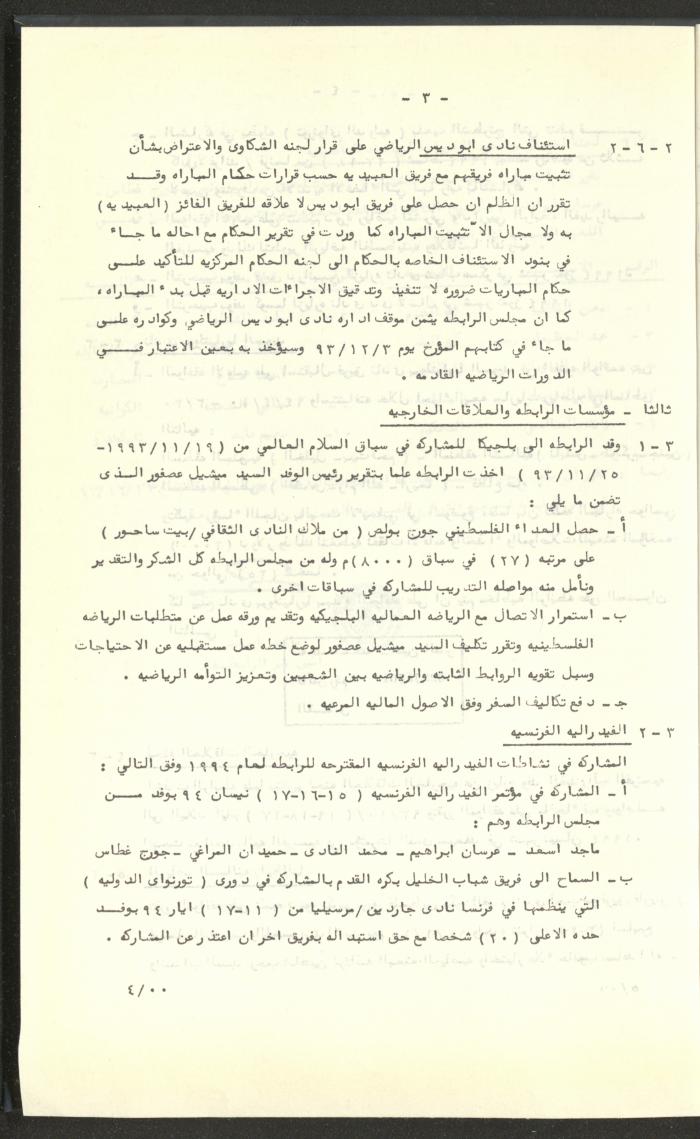 - ٣ -
٢-٦-٢ استئناف نادى ابو ديس الرياضي على قرار لجنه الشكاوى والاعتراض بشأن
تثبيت مباراه فريقهم مع فريق العبيديه حسب قرارات حكام المباراه وقــد
تقرر ان الظلم ان حصل على فريق ابو ديس لا علاقه للفريق الفائز ( العبيديه )
به ولا مجال الا تثبيت المباراه كما وردت في تقرير الحكام مع احاله ما جاء
في بنود الاستئناف الخاصه بالحكام الى لجنه الحكام المركزيه للتأكيد علــى
حكام المباريات ضروره لا تنفيذ وتدقيق الاجراءات الاداريه قبل بدء المباراه ،
كما ان مجلس الرابطه يثمن موقف اداره نادى ابو ديس الرياضي وكوادره علــى
ما جاء في كتابهم المؤرخ يوم ٩٣/١٢/٣ وسيؤخذ به بعين الاعتبار فــــي
الدورات الرياضيه القادمه .
ثالثا - مؤسسات الرابطه والعلاقات الخارجيه
٣-١ وفد الرابطه الى بلجيكا للمشاركه في سباق السلام العالمي من ( ١٩٩٣/١١/١٩-
٩٣/١١/٢٥ ) اخذت الرابطه علما بتقرير رئيس الوفد السيد ميشيل عصفور الــذى
تضمن ما يلي :
أ- حصل العداء الفلسطيني جورج بولص ( من ملاك النادى الثقافي /بيت ساحور )
على مرتبه ( ٢٧ ) في سباق ( ٨٠٠٠ )م وله من مجلس الرابطه كل الشكر والتقدير
ونأمل منه مواصله التدريب للمشاركه في سباقات اخرى .
ب- استمرار الاتصال مع الرياضه العماليه البلجيكيه وتقديم ورقه عمل عن متطلبات الرياضه
الفلسطينيه وتقرر تكليف السيد ميشيل عصفور لوضع خطه عمل مستقبليه عن الاحتياجات
وسبل تقويه الروابط الثابته والرياضيه بين الشعبين وتعزيز التوأمه الرياضيه .
جـ- دفع تكاليف السفر وفق الاصول الماليه المرعيه .
٣-٢ الفيدراليه الفرنسيه
المشاركه في نشاطات الفيدراليه الفرنسيه المقترحه للرابطه لعام ١٩٩٤ وفق التالي :
أ- المشاركه في مؤتمر الفيدراليه الفرنسيه ( ١٥-١٦-١٧ ) نيسان ٩٤ بوفد مـــن
مجلس الرابطه وهم :
ماجد اسعد - عرسان ابراهيم - محمد النادى - حميدان المراغي - جورج غطاس
ب- السماح الى فريق شباب الخليل بكره القدم بالمشاركه في دورى ( تورنواى الدوليه )
التي ينظمها في فرنسا نادى جاردين/مرسيليا من ( ١١-١٧ ) ايار ٩٤ بوفــد
حده الاعلى ( ٢٠ ) شخصا مع حق استبداله بفريق اخر ان اعتذر عن المشاركه .
٤/٠٠